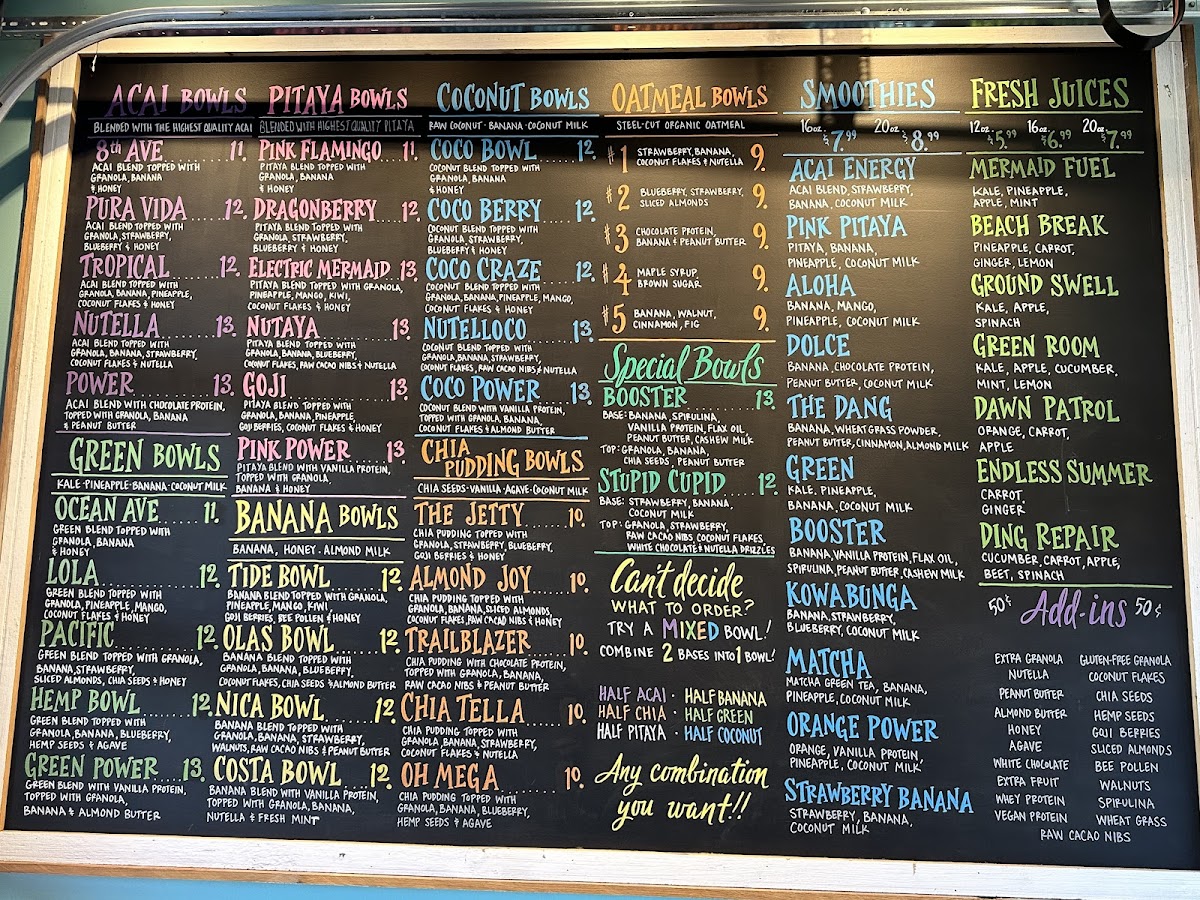 ACAI BOWLS
BLENDED WITH THE HIGHEST QUALITY ACAI
8th AVE 11.
ACAI BLEND TOPPED WITH
GRANOLA, BANANA
& HONEY
PURA VIDA.....12.
ACAI BLEND TOPPED WITH
GRANOLA, STRAWBERRY,
BLUEBERRY & HONEY
TROPICAL.....12.
ACAI BLEND TOPPED WITH
GRANOLA, BANANA, PINEAPPLE,
COCONUT FLAKES & HONEY
NUTELLA.....13.
ACAI BLEND TOPPED WITH
GRANOLA, BANANA, STRAWBERRY,
COCONUT FLAKES & NUTELLA
POWER.....13.
ACAI BLEND WITH CHOCOLATE PROTEIN,
TOPPED WITH GRANOLA, BANANA
& PEANUT BUTTER
GREEN BOWLS
KALE · PINEAPPLE · BANANA · COCONUT MILK
OCEAN AVE.....11.
GREEN BLEND TOPPED WITH
GRANOLA, BANANA
& HONEY
LOLA.....12.
GREEN BLEND TOPPED WITH
GRANOLA, PINEAPPLE, MANGO,
COCONUT FLAKES & HONEY
PACIFIC.....12.
GREEN BLEND TOPPED WITH GRANOLA,
BANANA, STRAWBERRY,
SLICED ALMONDS, CHIA SEEDS & HONEY
HEMP BOWL.....12.
GREEN BLEND TOPPED WITH
GRANOLA, BANANA, BLUEBERRY,
HEMP SEEDS & AGAVE
GREEN POWER.....13.
GREEN BLEND WITH VANILLA PROTEIN,
TOPPED WITH GRANOLA,
BANANA & ALMOND BUTTER
PITAYA BOWLS
BLENDED WITH HIGHEST QUALITY PITAYA
PINK FLAMINGO 11.
PITAYA BLEND TOPPED WITH
GRANOLA, BANANA
& HONEY
DRAGONBERRY.....12.
PITAYA BLEND TOPPED WITH
GRANOLA, STRAWBERRY,
BLUEBERRY & HONEY
ELECTRIC MERMAID 13.
PITAYA BLEND TOPPED WITH GRANOLA,
PINEAPPLE, MANGO, KIWI,
COCONUT FLAKES & HONEY
NUTAYA.....13.
PITAYA BLEND TOPPED WITH
GRANOLA, BANANA, BLUEBERRY,
COCONUT FLAKES, RAW CACAO NIBS & NUTELLA
GOJI.....13.
PITAYA BLEND TOPPED WITH
GRANOLA, BANANA, PINEAPPLE,
GOJI BERRIES, COCONUT FLAKES & HONEY
PINK POWER.....13.
PITAYA BLEND WITH VANILLA PROTEIN,
TOPPED WITH GRANOLA,
BANANA & HONEY
BANANA BOWLS
BANANA, HONEY · ALMOND MILK
TIDE BOWL.....12.
BANANA BLEND TOPPED WITH GRANOLA,
PINEAPPLE, MANGO, KIWI,
GOJI BERRIES, BEE POLLEN & HONEY
OLAS BOWL.....12.
BANANA BLEND TOPPED WITH
GRANOLA, BANANA, BLUEBERRY,
COCONUT FLAKES, CHIA SEEDS & ALMOND BUTTER
NICA BOWL.....12.
BANANA BLEND TOPPED WITH
GRANOLA, BANANA, STRAWBERRY,
WALNUTS, RAW CACAO NIBS & PEANUT BUTTER
COSTA BOWL.....12.
BANANA BLEND WITH VANILLA PROTEIN,
TOPPED WITH GRANOLA, BANANA,
NUTELLA & FRESH MINT
COCONUT BOWLS
RAW COCONUT · BANANA · COCONUT MILK
COCO BOWL.....12.
COCONUT BLEND TOPPED WITH
GRANOLA, BANANA
& HONEY
COCO BERRY.....12.
COCONUT BLEND TOPPED WITH
GRANOLA, STRAWBERRY,
BLUEBERRY & HONEY
COCO CRAZE.....12.
COCONUT BLEND TOPPED WITH
GRANOLA, BANANA, PINEAPPLE, MANGO,
COCONUT FLAKES & HONEY
NUTELLOCO.....13.
COCONUT BLEND TOPPED WITH
GRANOLA, BANANA, STRAWBERRY,
COCONUT FLAKES, RAW CACAO NIBS & NUTELLA
COCO POWER.....13.
COCONUT BLEND WITH VANILLA PROTEIN,
TOPPED WITH GRANOLA, BANANA,
COCONUT FLAKES & ALMOND BUTTER
CHIA
PUDDING BOWLS
CHIA SEEDS · VANILLA · AGAVE · COCONUT MILK
THE JETTY.....10.
CHIA PUDDING TOPPED WITH
GRANOLA, STRAWBERRY, BLUEBERRY,
GOJI BERRIES & HONEY
ALMOND JOY.....10.
CHIA PUDDING TOPPED WITH
GRANOLA, BANANA, SLICED ALMONDS,
COCONUT FLAKES, RAW CACAO NIBS & HONEY
TRAILBLAZER.....10.
CHIA PUDDING WITH CHOCOLATE PROTEIN,
TOPPED WITH GRANOLA, BANANA,
RAW CACAO NIBS & PEANUT BUTTER
CHIA TELLA.....10.
CHIA PUDDING TOPPED WITH
GRANOLA, BANANA, STRAWBERRY,
COCONUT FLAKES & NUTELLA
OH MEGA.....10.
CHIA PUDDING TOPPED WITH
GRANOLA, BANANA, BLUEBERRY,
HEMP SEEDS & AGAVE
OATMEAL BOWLS
STEEL-CUT ORGANIC OATMEAL
#1 STRAWBERRY, BANANA, 9.
COCONUT FLAKES & NUTELLA
#2 BLUEBERRY, STRAWBERRY, 9.
SLICED ALMONDS
#3 CHOCOLATE PROTEIN, 9.
BANANA & PEANUT BUTTER
#4 MAPLE SYRUP, 9.
BROWN SUGAR
#5 BANANA, WALNUT, 9.
CINNAMON, FIG
Special Bowls
BOOSTER.....13.
BASE: BANANA, SPIRULINA,
VANILLA PROTEIN, FLAX OIL,
PEANUT BUTTER, CASHEW MILK
TOP: GRANOLA, BANANA,
CHIA SEEDS, PEANUT BUTTER
STUPID CUPID.....12.
BASE: STRAWBERRY, BANANA,
COCONUT MILK
TOP: GRANOLA, STRAWBERRY,
RAW CACAO NIBS, COCONUT FLAKES,
WHITE CHOCOLATE & NUTELLA DRIZZLES
Can't decide
WHAT TO ORDER?
TRY A MIXED BOWL!
COMBINE 2 BASES INTO 1 BOWL!
HALF ACAI · HALF BANANA
HALF CHIA · HALF GREEN
HALF PITAYA · HALF COCONUT
Any combination
you want!!
SMOOTHIES
16oz. $7.99 20oz. $8.99
ACAI ENERGY
ACAI BLEND, STRAWBERRY,
BANANA, COCONUT MILK
PINK PITAYA
PITAYA, BANANA,
PINEAPPLE, COCONUT MILK
ALOHA
BANANA, MANGO,
PINEAPPLE, COCONUT MILK
DOLCE
BANANA, CHOCOLATE PROTEIN,
PEANUT BUTTER, COCONUT MILK
THE DANG
BANANA, WHEATGRASS POWDER,
PEANUT BUTTER, CINNAMON, ALMOND MILK
GREEN
KALE, PINEAPPLE,
BANANA, COCONUT MILK
BOOSTER
BANANA, VANILLA PROTEIN, FLAX OIL,
SPIRULINA, PEANUT BUTTER, CASHEW MILK
KOWABUNGA
BANANA, STRAWBERRY,
BLUEBERRY, COCONUT MILK
MATCHA
MATCHA GREEN TEA, BANANA,
PINEAPPLE, COCONUT MILK
ORANGE POWER
ORANGE, VANILLA PROTEIN,
PINEAPPLE, COCONUT MILK
STRAWBERRY BANANA
STRAWBERRY, BANANA,
COCONUT MILK
FRESH JUICES
12oz. $5.99 16oz. $6.99 20oz. $7.99
MERMAID FUEL
KALE, PINEAPPLE,
APPLE, MINT
BEACH BREAK
PINEAPPLE, CARROT,
GINGER, LEMON
GROUND SWELL
KALE, APPLE,
SPINACH
GREEN ROOM
KALE, APPLE, CUCUMBER,
MINT, LEMON
DAWN PATROL
ORANGE, CARROT,
APPLE
ENDLESS SUMMER
CARROT,
GINGER
DING REPAIR
CUCUMBER, CARROT, APPLE,
BEET, SPINACH
50¢ Add-ins 50¢
EXTRA GRANOLA GLUTEN-FREE GRANOLA
NUTELLA COCONUT FLAKES
PEANUT BUTTER CHIA SEEDS
ALMOND BUTTER HEMP SEEDS
HONEY GOJI BERRIES
AGAVE SLICED ALMONDS
WHITE CHOCOLATE BEE POLLEN
EXTRA FRUIT WALNUTS
WHEY PROTEIN SPIRULINA
VEGAN PROTEIN WHEAT GRASS
RAW CACAO NIBS